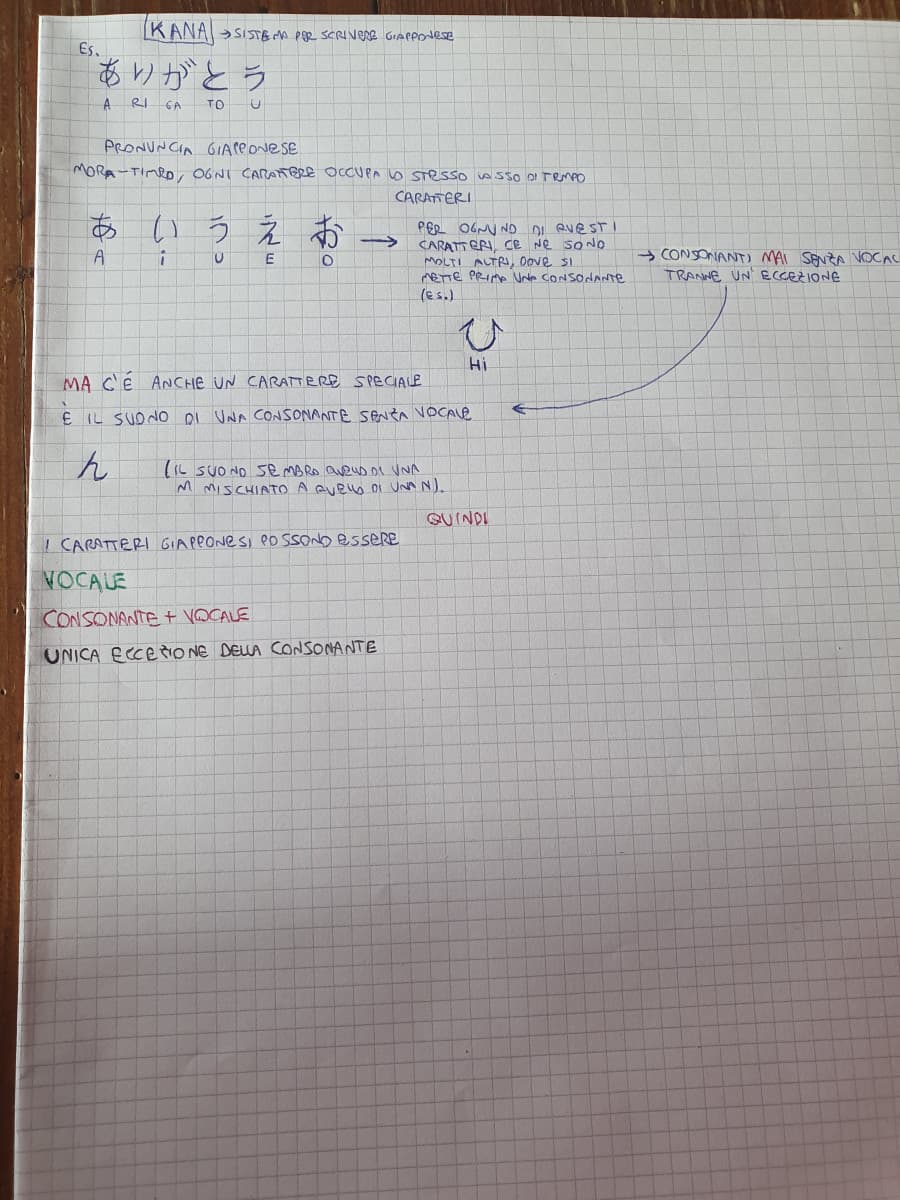 KANA → SISTEMA PER SCRIVERE GIAPPONESE
ES.
ありがとう
A RI GA TO U
PRONUNCIA GIAPPONESE
MORA-TIMED, OGNI CARATTERE OCCUPA LO STESSO LASSO DI TEMPO
CARATTERI
あ い う え お →
A i U E O
PER OGNUNO DI QUESTI
CARATTERI, CE NE SONO
MOLTI ALTRI, DOVE SI
METTE PRIMA UNA CONSONANTE
(ES.)
→ CONSONANTI MAI SENZA VOCAL
TRANNE UN'ECCEZIONE
ひ
Hi
MA C'É ANCHE UN CARATTERE SPECIALE
È IL SUONO DI UNA CONSONANTE SENZA VOCALE
ん
(IL SUONO SEMBRA QUELLO DI UNA
M MISCHIATO A QUELLO DI UNA N).
QUINDI
I CARATTERI GIAPPONESI POSSONO ESSERE
VOCALE
CONSONANTE + VOCALE
UNICA ECCEZIONE DELLA CONSONANTE